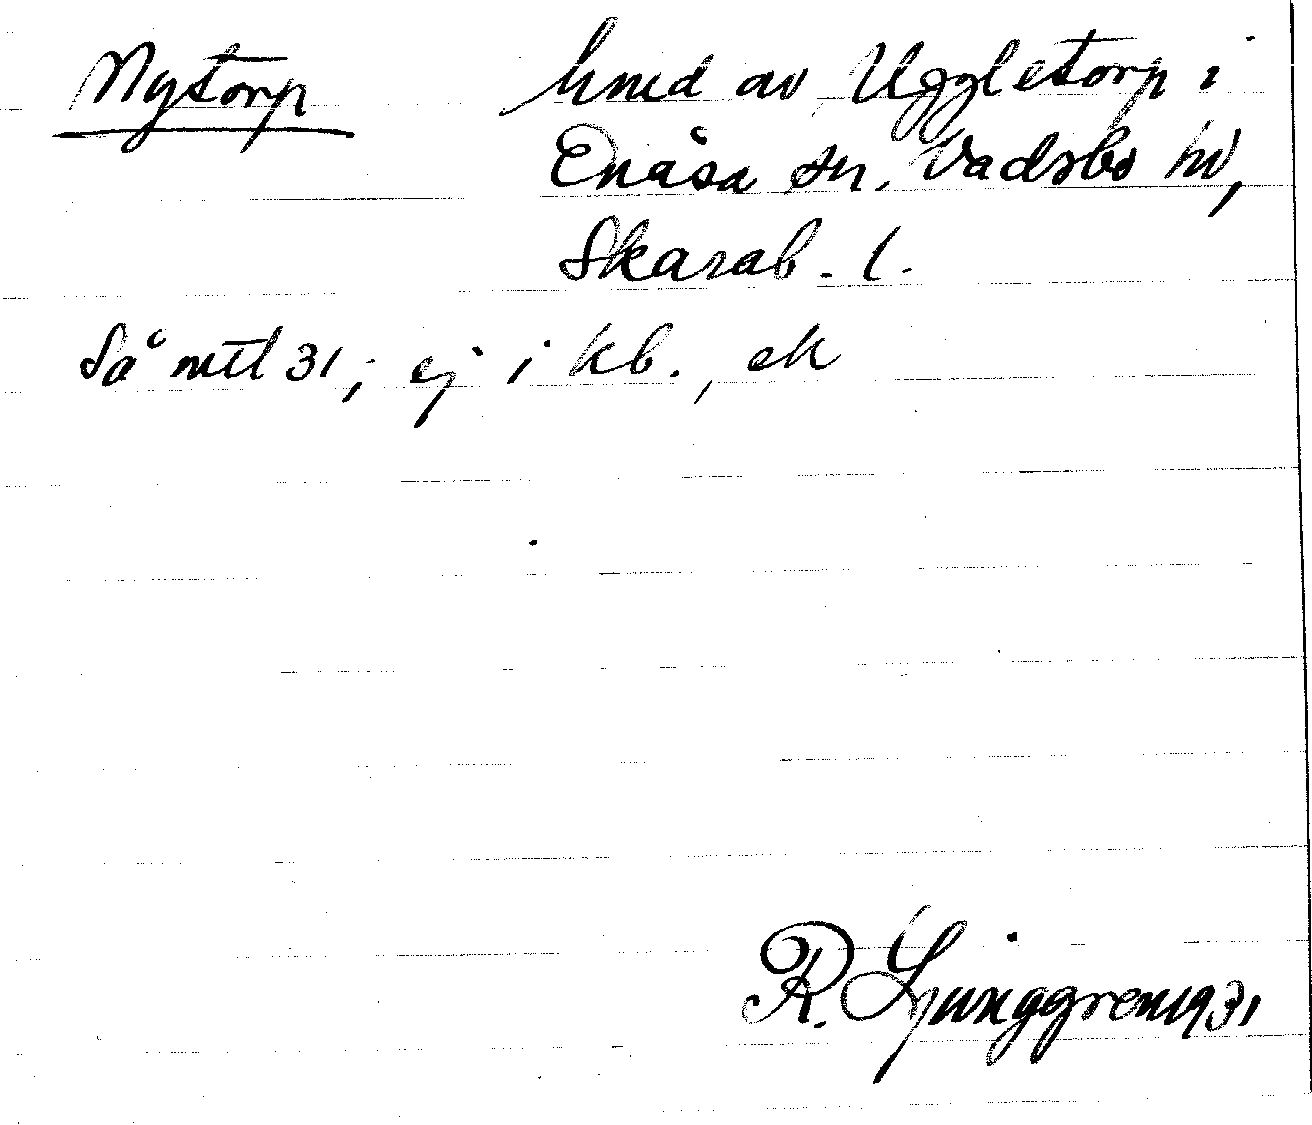 Nytorp hmd av Uggletorp i
Enåsa sn. Vadsbo hd,
Skarab. l.
Så mtl 31, ej i kb., ek
R. Ljunggren 1931